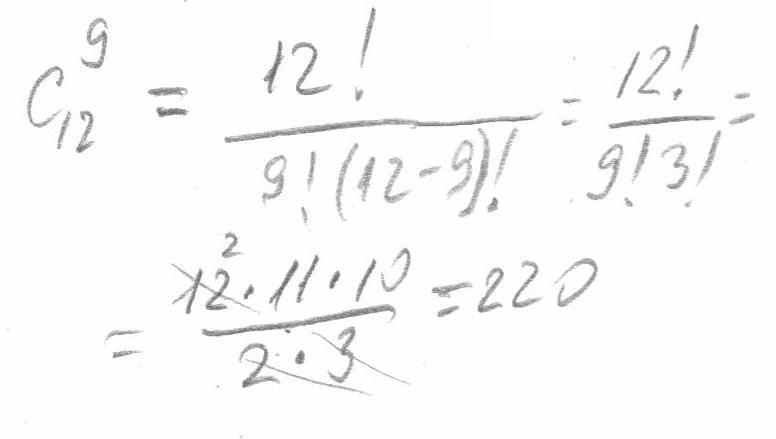 C₁₂⁹ = 12! / 9!(12-9)! = 12! / 9!3! =
= 12²·11·10 / 2·3 = 220